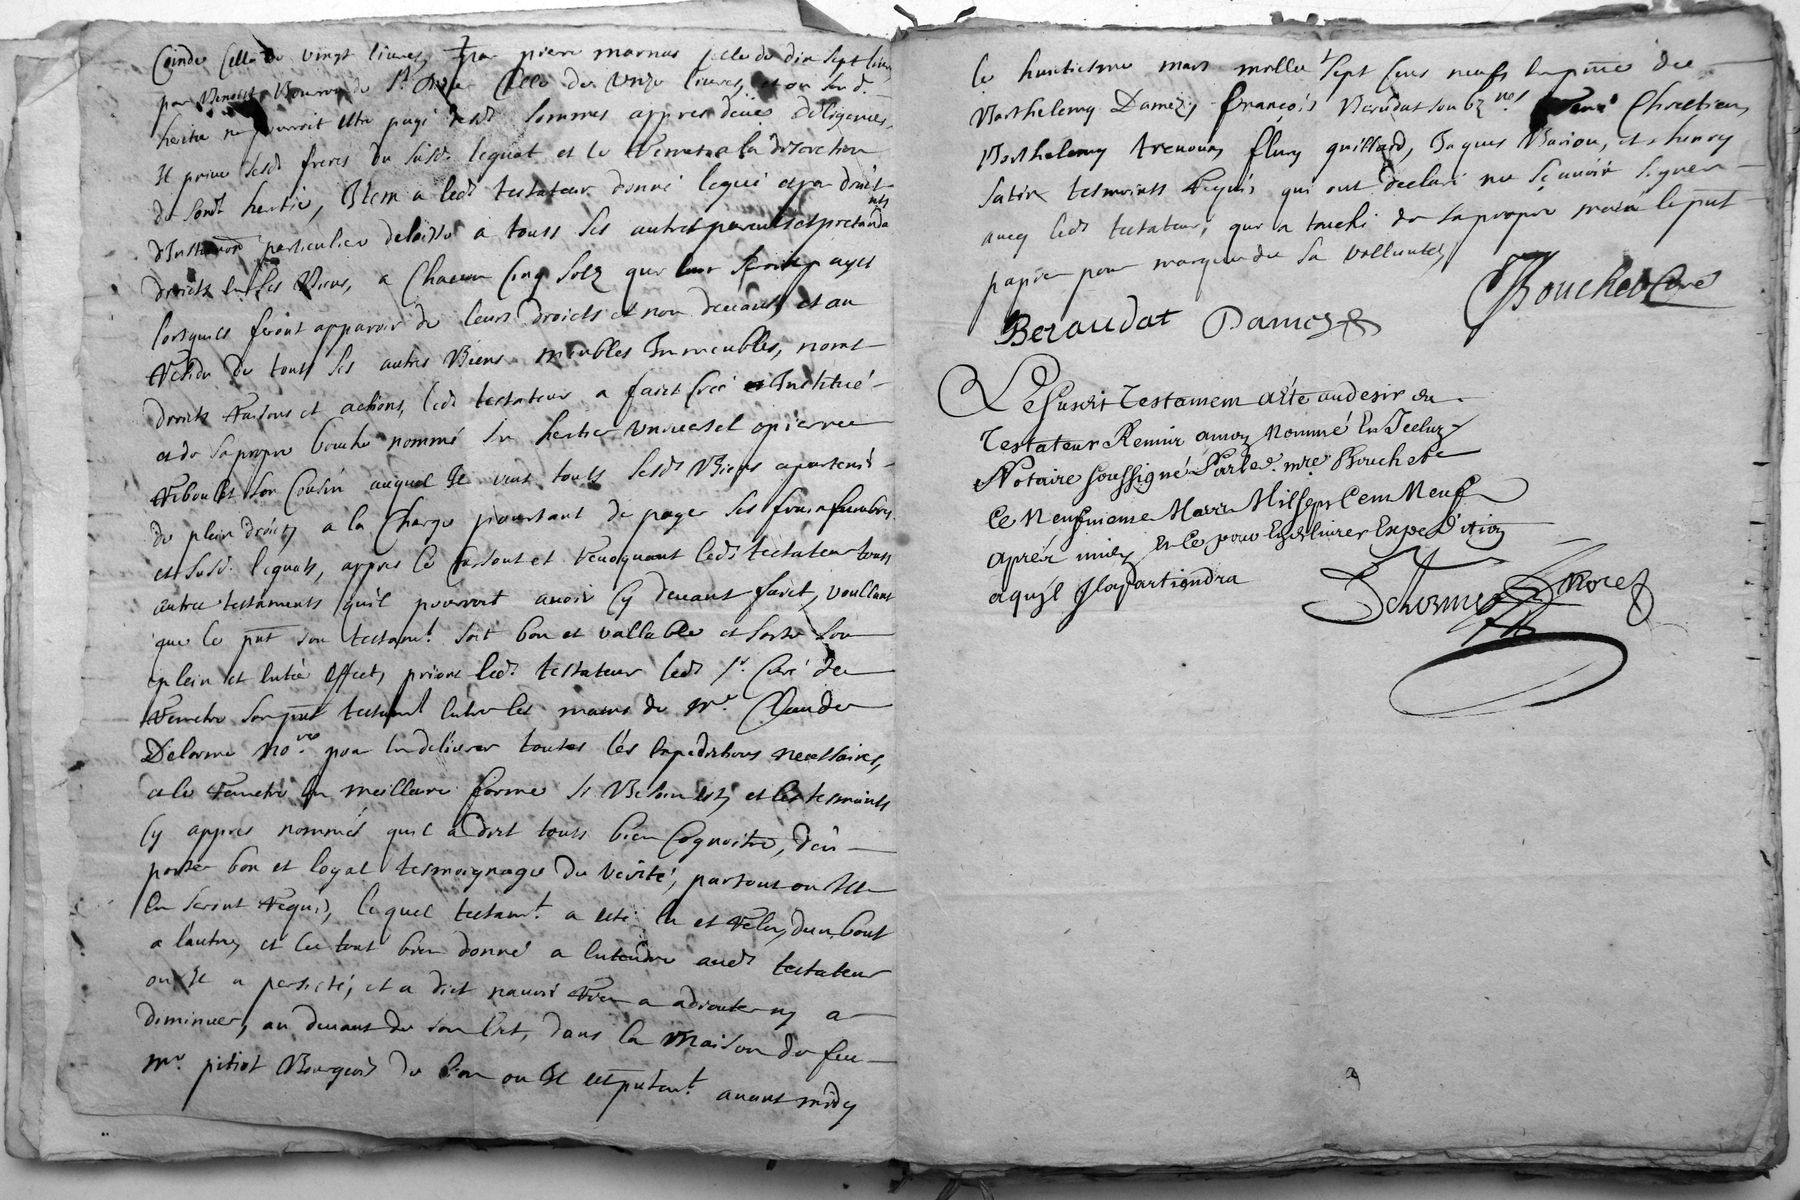 Coindo celle de vingt livres, par pierre marnas celle de dix sept livres
par Benoist celle de unze livres, et ou sond.
heritier ne pourroit estre payé desd. sommes appres deues diligences,
Il prive sesd freres du susd. legat et le remet a la discretion
de sond heritier, Item a led. testateur donné legué et par droit
particulier delaissé a touts ses autres parents et pretendants
droicts en ses Biens, a chacun cinq solz que leur seront payes
lorsquils feront apparoir de leurs droicts et non devant, et au
Residu de touts ses autres Biens meubles Immeubles, noms
droicts raisons et actions, led. testateur a faict creé et Institué
et de sa propre bouche nommé son heritier universel pierre
Reboulet son Cousin auquel Il veut touts sesd. Biens apartenir
de plein droict, a la Charge pourtant de payer ses frais funebres
et susd. legats, appres ce Cassant et revoquant led. testateur touts
autres testaments quil pourroit avoir cy devant faict, voullant
que le pnt son testamt. soit bon et vallable et sorte son
plein et entier effect, priant led. testateur led. sr. Curé de
remetre son pnt testamt entre les mains de Mr. Claude
Delorme nore. pour en delivrer toutes les expeditions necessaires,
a le remetre en meilleure forme si Besoin est, et les tesmoints
cy appres nommés quil a dict touts bien Cognoitre, d'en
porter bon et loyal tesmoignage de verité, partout ou Ils
en seront requis, lequel testamt. a esté lu et relu, du un bout
a l'autre, et le tout bien donné a entendre aud. testateur
ou Il a persisté, et a dict n'avoir rien a adjouter ny a
diminuer, au devant de son lict, dans la Maison de feu
Mr. pitiot Bourgeois de Lion ou Il est putemt. avant midy
le huitiesme mars mille sept cens neuf, en pnce de
Barthelemy Damezin françois Beraudat soubz.nes Chretien,
Barthelemy Trenouay, fleury guillard, Jaques Bariou, et henry
Satin tesmoints requis qui ont declaré ne sçavoir signer
avec led. testateur, qui a touché de sa propre main le pnt
papier pour marque de sa vollonté,
Beraudat Damezin Bouchet Curé
Le susdit Testament a été au desir du
Testateur Remis a moy Nommé En Iceluy
Notaire soussigné Par led. mre Bouchet
Ce Neufvieme Mars Mil sept Cent Neuf
apres midy Et Ce pour En delivrer Expedition
a qu'il Il apartiendra
Delorme Nore